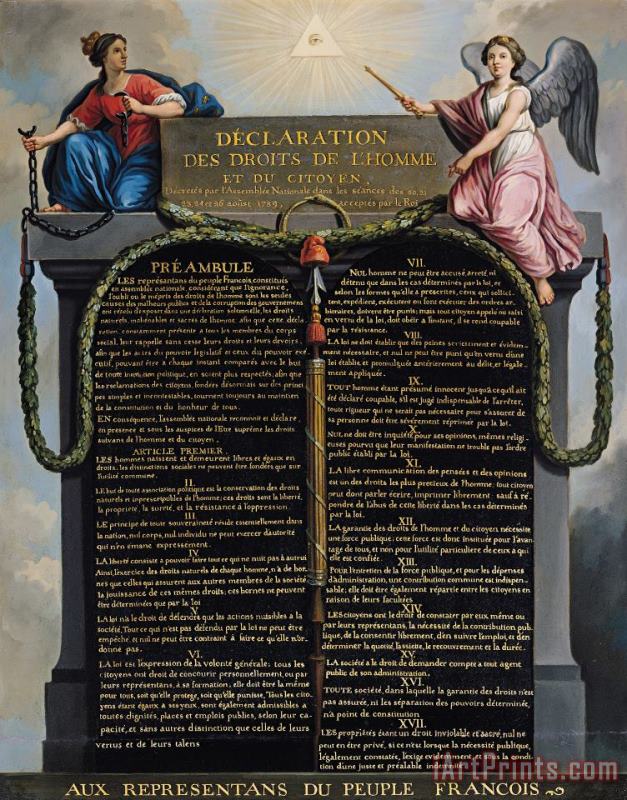 DÉCLARATION
DES DROITS DE L'HOMME
ET DU CITOYEN,
Décrétés par l'Assemblée Nationale dans les séances des 20, 21
23, 24 et 26 aoûst 1789, acceptés par le Roi
PRÉAMBULE
LES représantans du peuple François, constitués
en assemblée nationale, considérant que l'ignorance,
l'oubli ou le mépris des droits de l'homme sont les seules
causes des malheurs publics et de la corruption des gouvernemens
ont résolu d'exposer dans une déclaration solemnelle, les droits
naturels, inaliénables et sacrés de l'homme; afin que cette décla
ration, constamment présente à tous les membres du corps
social, leur rappelle sans cesse leurs droits et leurs devoirs;
afin que les actes du pouvoir législatif et ceux du pouvoir exé
cutif, pouvant être à chaque instant comparés avec le but
de toute institution politique, en soient plus respectés; afin que
les reclamations des citoyens, fondées désormais sur des princi
pes simples et incontestables, tournent toujours au maintien
de la constitution et du bonheur de tous.
EN conséquence, l'assemblée nationale reconnoit et déclare,
en presence et sous les auspices de l'Etre suprême les droits
suivans de l'homme et du citoyen.
ARTICLE PREMIER.
LES hommes naissent et demeurent libres et égaux en
droits. les distinctions sociales ne peuvent être fondées que sur
l'utilité commune.
II.
LE but de toute association politique est la conservation des droits
naturels et inprescriptibles de l'homme; ces droits sont la liberté,
la propriété, la sureté, et la résistance à l'oppression.
III.
LE principe de toute souveraineté réside essentiellement dans
la nation, nul corps, nul individu ne peut exercer d'autorité
qui n'en émane expressement.
IV.
LA liberté consiste à pouvoir faire tout ce qui ne nuit pas à autrui
Ainsi, l'exercice des droits naturels de chaque homme, n'a de bor-
nes que celles qui assurent aux autres membres de la société
la jouissance de ces mêmes droits; ces bornes ne peuvent
être déterminées que par la loi
V.
LA loi n'a le droit de défendre que les actions nuisibles à la
société. Tout ce qui n'est pas défendu par la loi ne peut être
empêché, et nul ne peut être contraint à faire ce qu'elle n'or-
donne pas.
VI.
LA loi est l'expression de la volonté générale; tous les
citoyens ont droit de concourir personnellement, ou par
leurs représentans, à sa formation; elle doit être la même
pour tous, soit qu'elle protege, soit qu'elle punisse. Tous les cito-
yens étant égaux à ses yeux, sont également admissibles à
toutes dignités, places et emplois publics, selon leur ca-
pacité, et sans autres distinction que celles de leurs
vertus et de leurs talens
VII.
NUL homme ne peut être accusé, arreté, ni
détenu que dans les cas déterminés par la loi, et
selon les formes qu'elle a prescrites, ceux qui sollici-
tent, expédient, exécutent ou font exécuter des ordres ar-
bitraires, doivent être punis; mais tout citoyen appelé ou saisi
en vertu de la loi, doit obéir à l'instant, il se rend coupable
par la résistance.
VIII.
LA loi ne doit établir que des peines strictement et évidem-
ment nécessaire, et nul ne peut être puni qu'en vertu d'une
loi établie et promulguée antérierement au délit, et légale-
ment appliquée.
IX.
TOUT homme étant présumé innocent jusqu'à ce qu'il ait
été déclaré coupable, s'il est jugé indispensable de l'arrêter,
toute rigueur qui ne serait pas nécessaire pour s'assurer de
sa personne doit être sévèrement réprimée par la loi.
X.
NUL ne doit être inquiété pour ses opinions, mêmes religi-
euses pourvu que leur manifestation ne trouble pas l'ordre
public établi par la loi.
XI.
LA libre communication des pensées et des opinions
est un des droits les plus precieux de l'homme; tout citoyen
peut donc parler écrire, imprimer librement: sauf à ré-
pondre de l'abus de cette liberté dans les cas déterminés
par la loi.
XII.
LA garantie des droits de l'homme et du citoyen nécessite
une force publique; cette force est donc instituée pour l'avan-
tage de tous, et non pour l'utilité particuliere de ceux a qui
elle est confiée.
XIII.
POUR l'entretien de la force publique, et pour les dépenses
d'administration, une contribution commune est indispen-
sable; elle doit être également répartie entre les citoyens en
raison de leurs facultées
XIV.
LES citoyens ont le droit de constater par eux même ou
par leurs représentans, la nécessité de la contribution pub-
lique, de la consentir librement, d'en suivre l'emploi, et d'en
déterminer la quotité, l'assiette, le recouvrement et la durée.
XV.
LA société a le droit de demander compte a tout agent
public de son administration.
XVI.
TOUTE société, dans laquelle la garantie des droits n'est
pas assurée, ni les séparation des pouvoirs déterminée,
n'a point de constitution
XVII.
LES propriétés étant un droit inviolable et sacré, nul ne
peut en être privé, si ce n'est lorsque la nécessité publique,
légalement constatée, l'exige évidemment, et sous la condi-
tion d'une juste et préalable indemnité
AUX REPRESENTANS DU PEUPLE FRANCOIS
iArtPrints.com